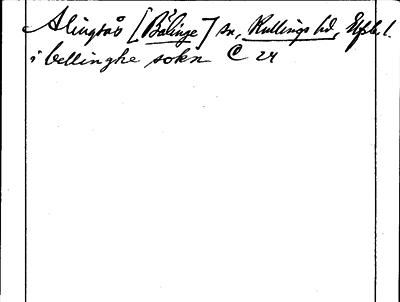 Alingsås [Bälinge] sn, Kullings hd, Elfsb. l.
i bellinghe sokn C 24